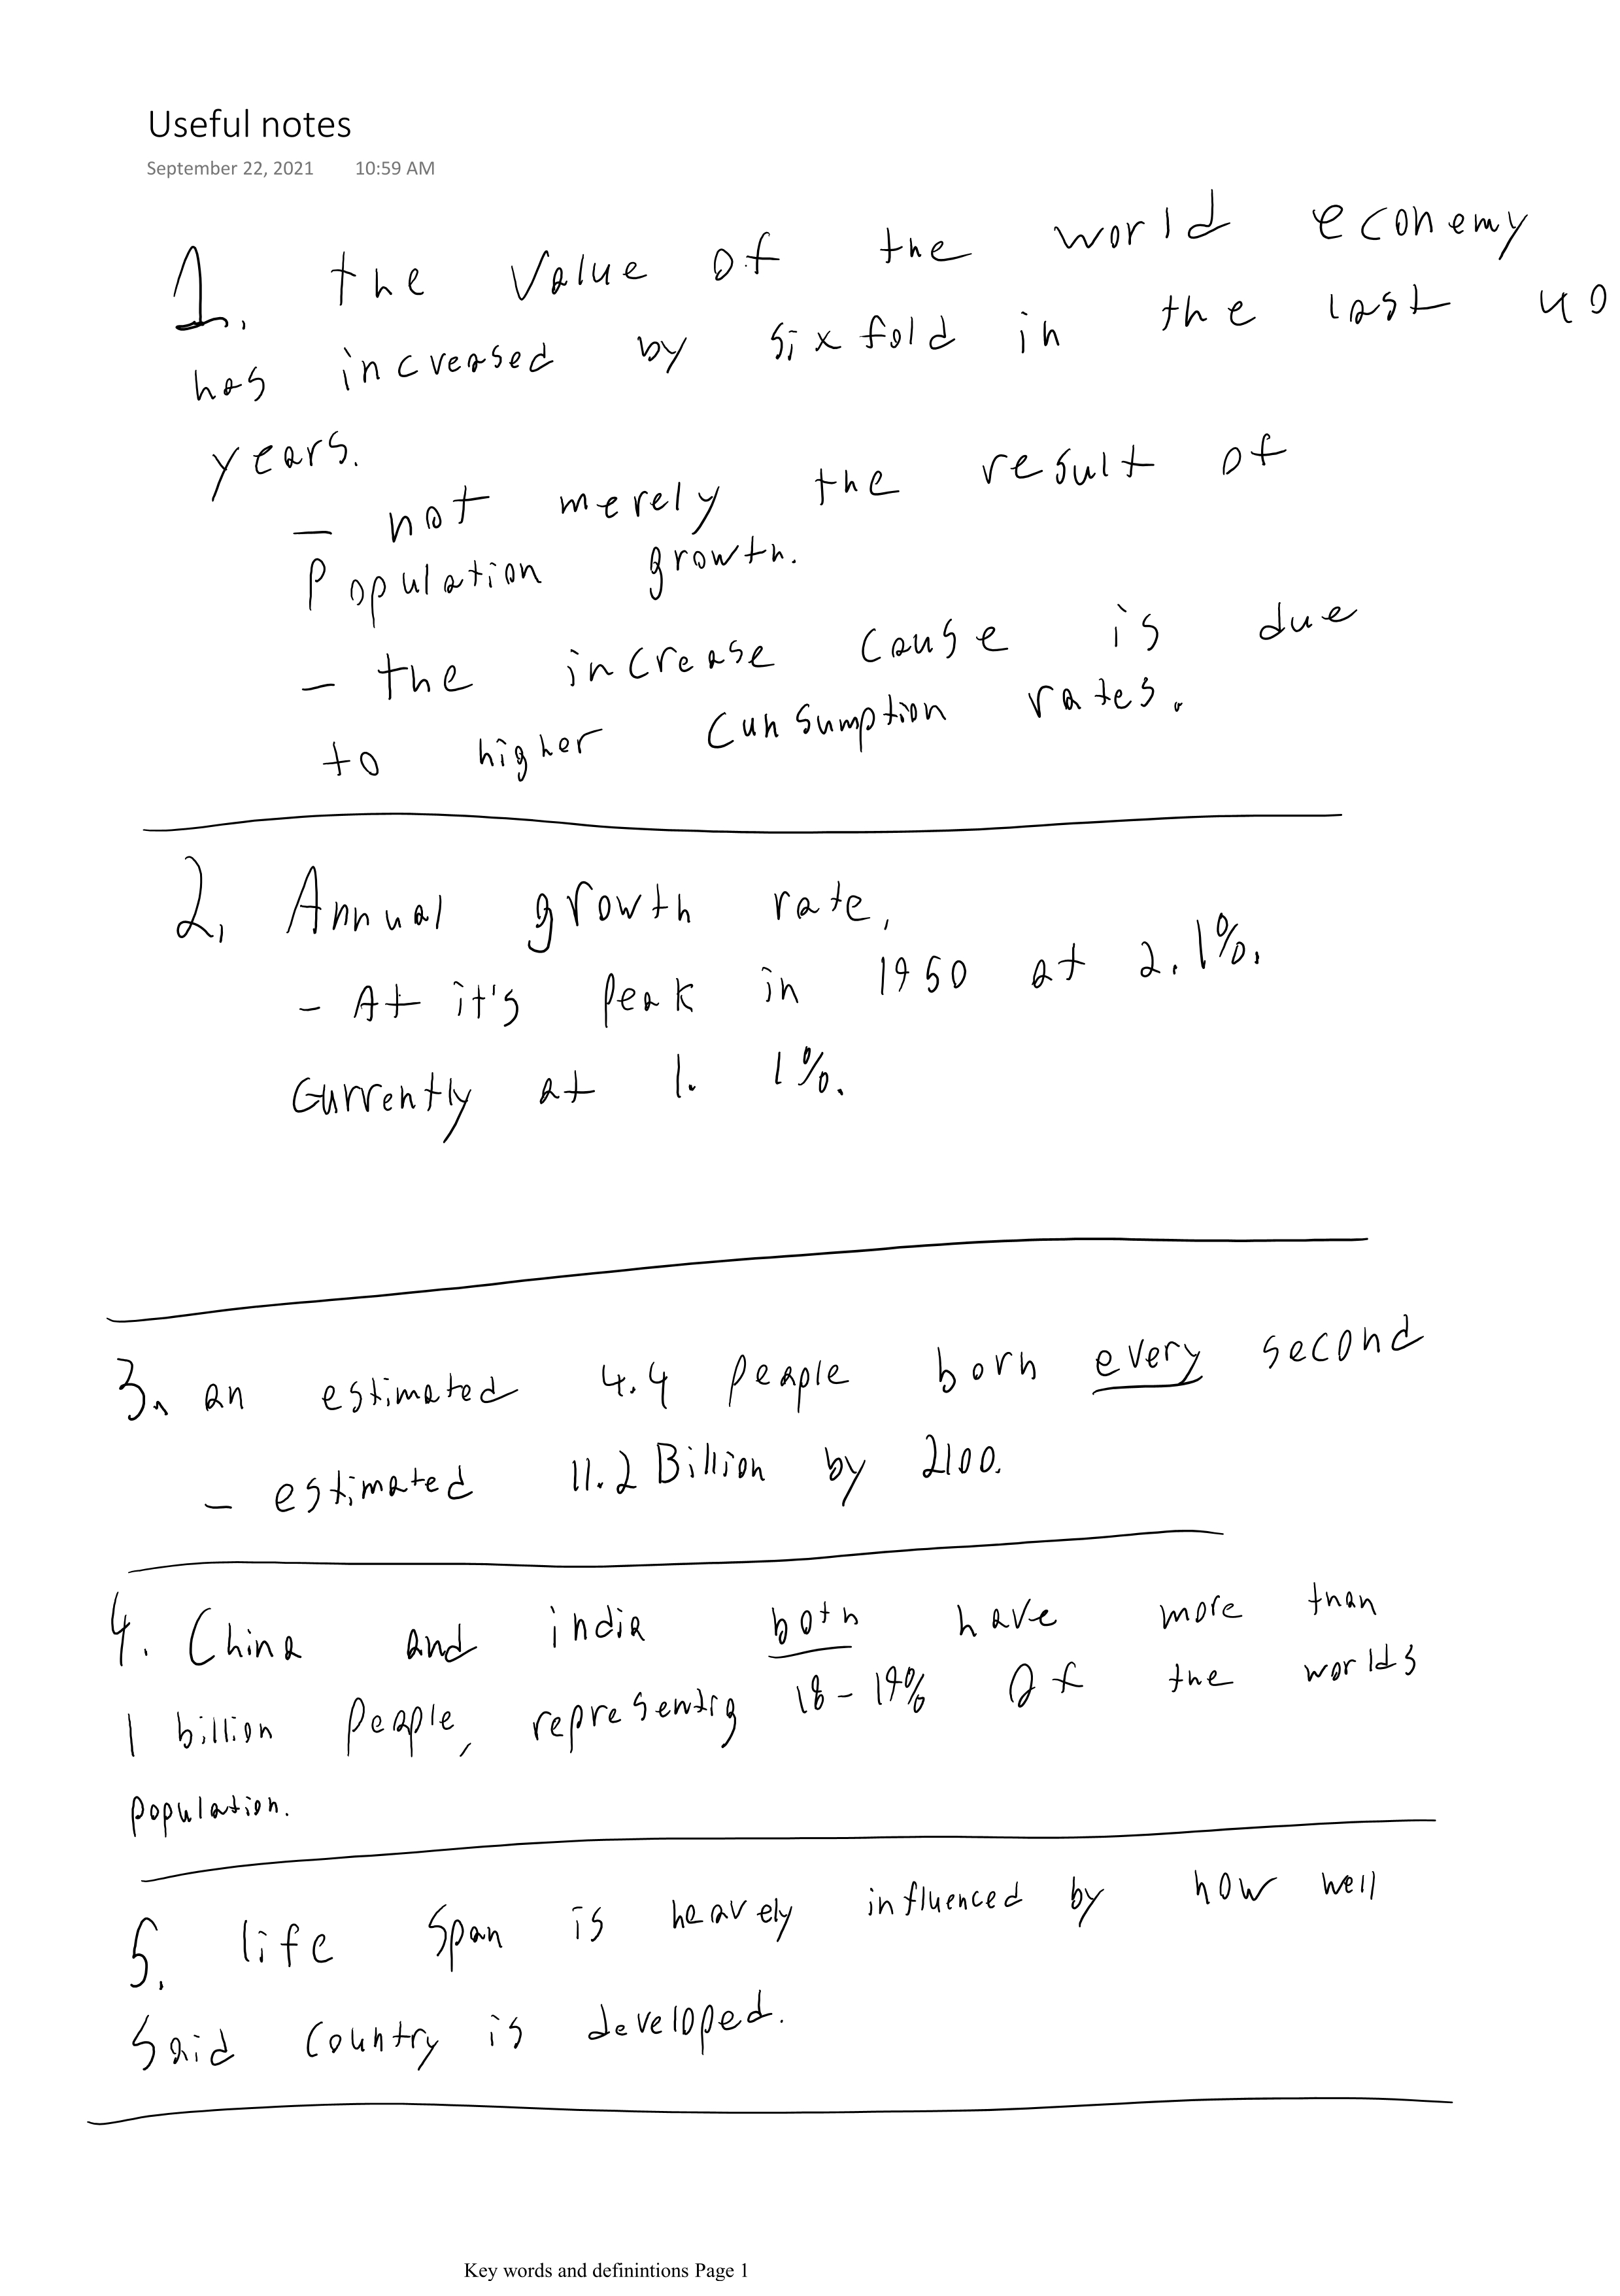 Useful notes
September 22, 2021 10:59 AM
1. the value of the world econemy
has increased by sixfold in the last 40
years.
- not merely the result of
Population growth.
- the increase cause is due
to higher cunsumption rates.
2. Annual growth rate,
- At it's peak in 1950 at 2.1%.
Currently at 1.1%.
3. an estimated 4.4 people born every second
- estimated 11.2 Billion by 2100.
4. China and india both have more than
1 billion people, representig 18-19% Of the worlds
population.
5. life span is heavely influenced by how well
Said country is developed.
Key words and definintions Page 1